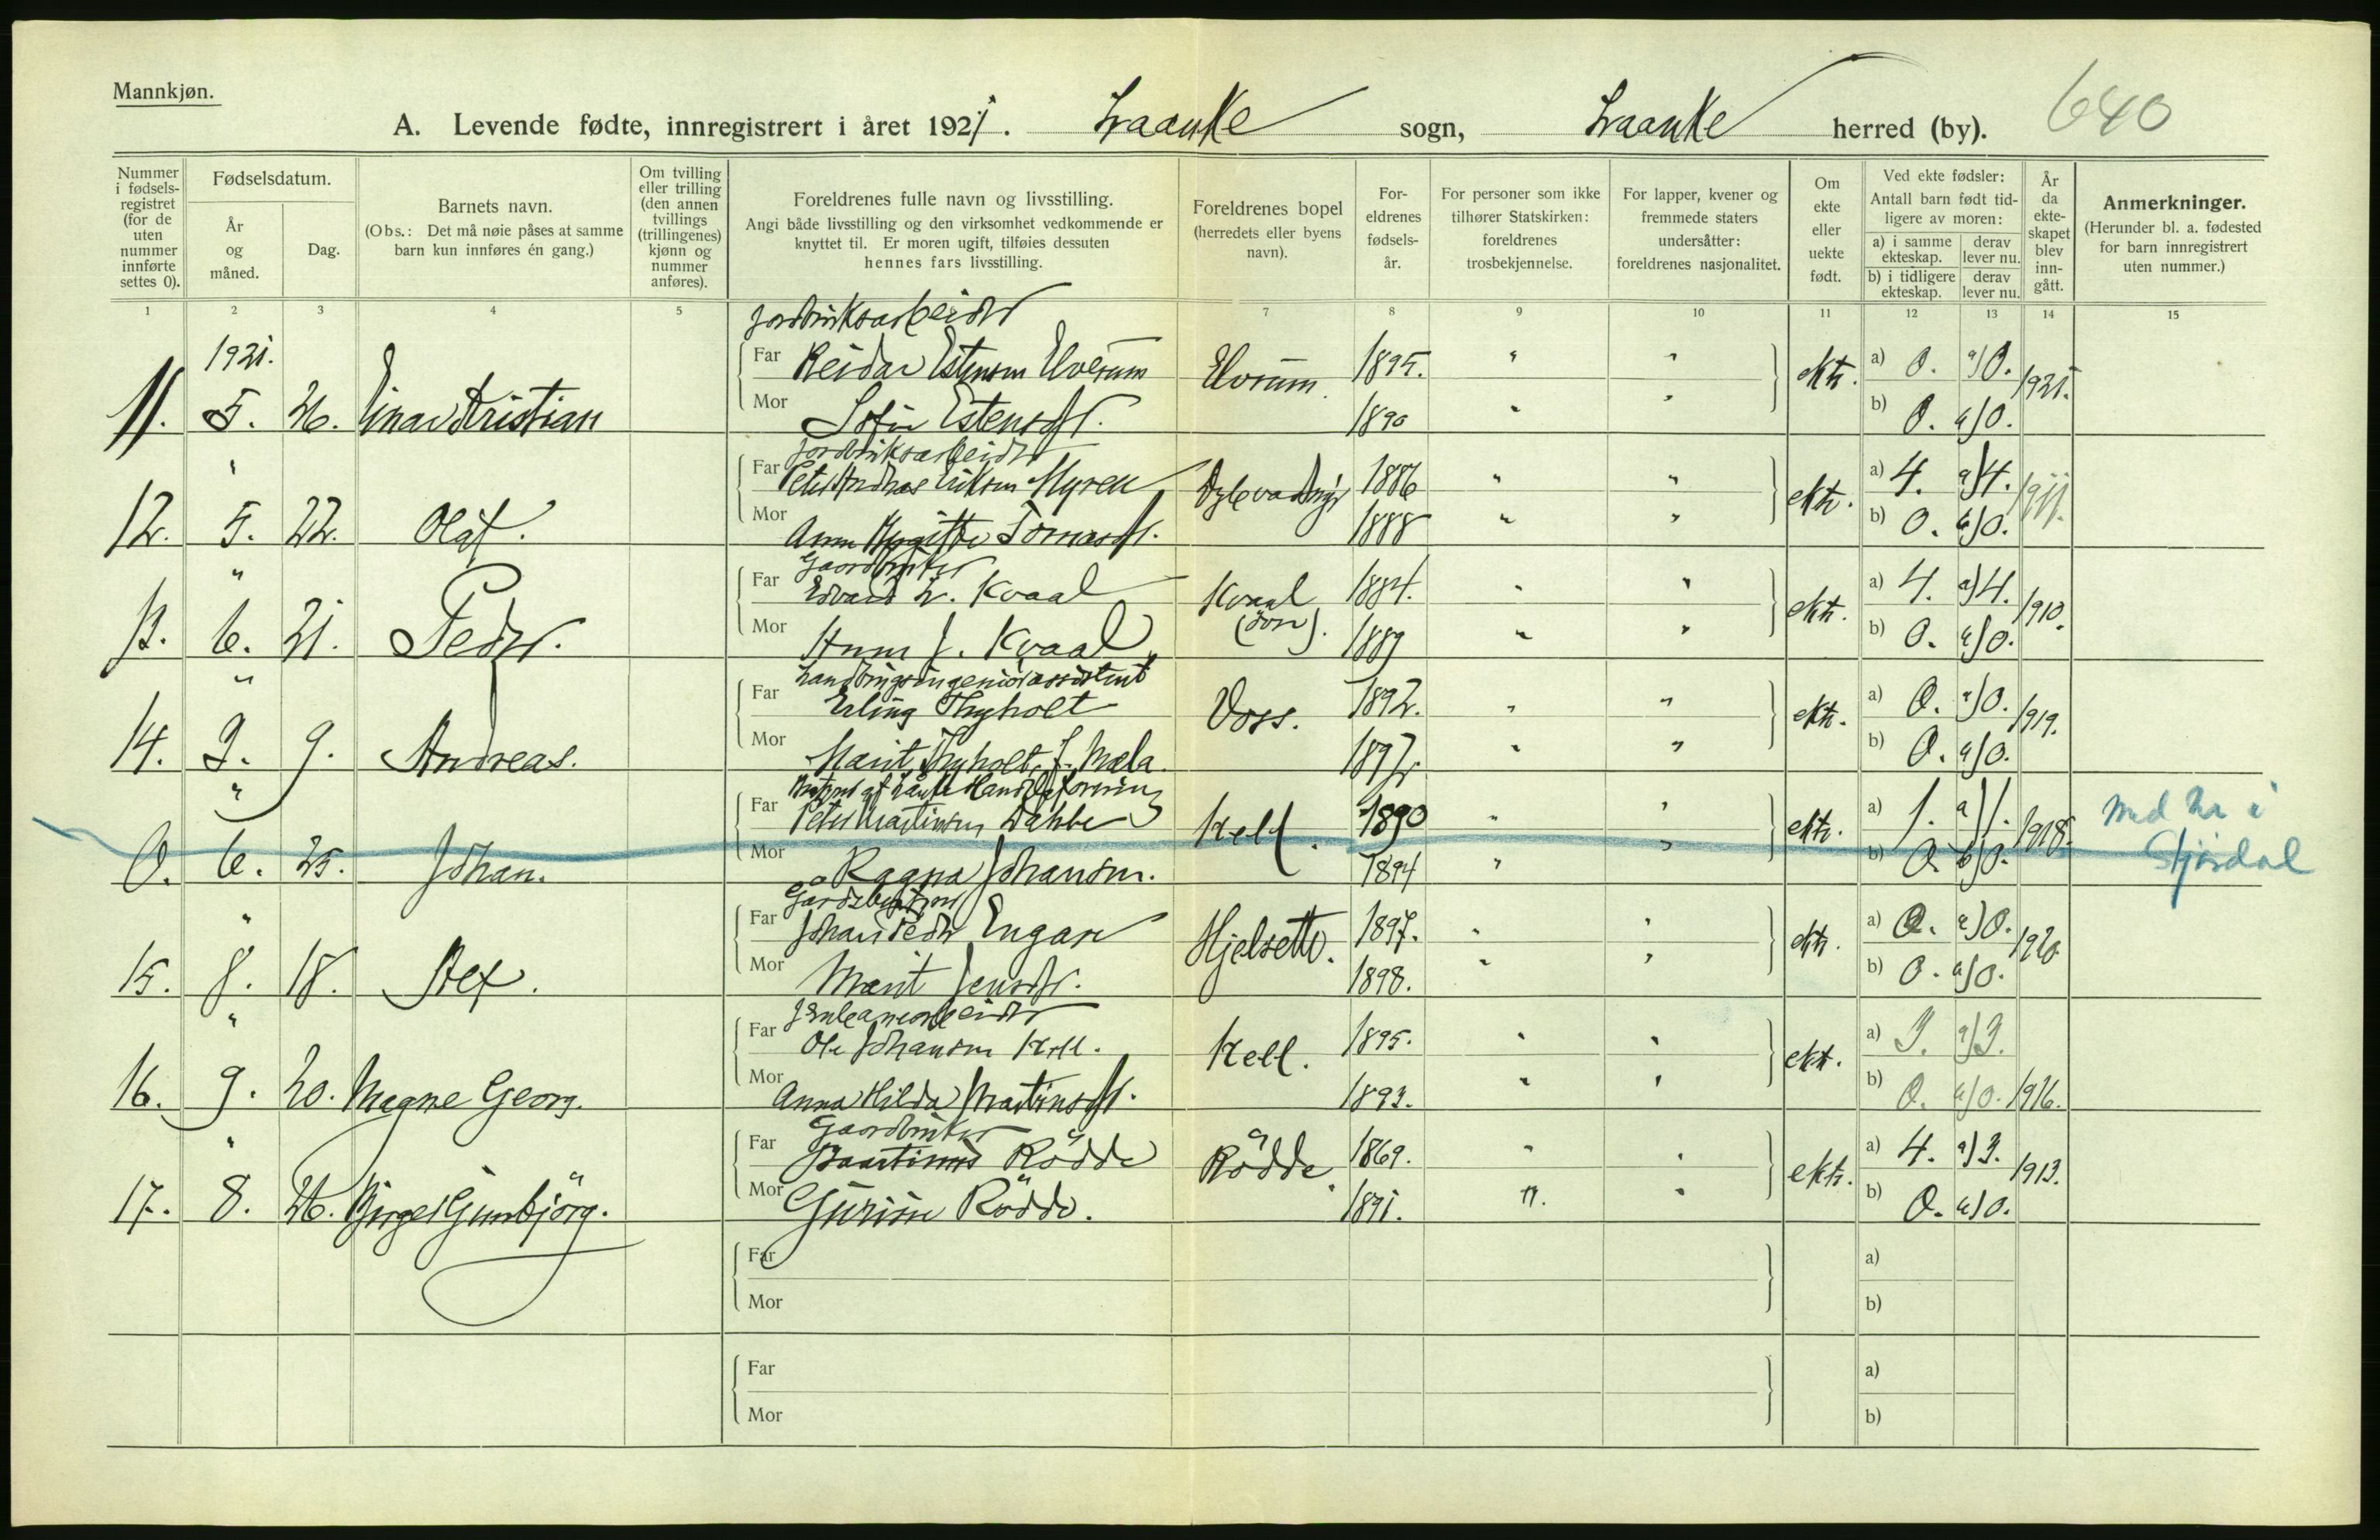 Mannkjøn.
A. Levende fødte, innregistrert i året 1921. Laanke sogn, Laanke herred (by). 640
Nummer i fødselsregistret (for de uten nummer innførte settes 0).
Fødselsdatum.
År og måned.
Dag.
Barnets navn.
(Obs.: Det må nøie påses at samme barn kun innføres én gang.)
Om tvilling eller trilling (den annen tvillings (trillingenes) kjønn og nummer anføres).
Foreldrenes fulle navn og livsstilling.
Angi både livsstilling og den virksomhet vedkommende er knyttet til. Er moren ugift, tilføies dessuten hennes fars livsstilling.
Foreldrenes bopel (herredets eller byens navn).
Foreldrenes fødselsår.
For personer som ikke tilhører Statskirken: foreldrenes trosbekjennelse.
For lapper, kvener og fremmede staters undersåtter: foreldrenes nasjonalitet.
Om ekte eller uekte født.
Ved ekte fødsler:
Antall barn født tidligere av moren:
a) i samme ekteskap. derav lever nu.
b) i tidligere ekteskap. derav lever nu.
År da ekteskapet blev inngått.
Anmerkninger.
(Herunder bl. a. fødested for barn innregistrert uten nummer.)
1 2 3 4 5 7 8 9 10 11 12 13 14 15
Jordbruksarbeider
1921. Far Reidar Estensen Elverum Elvrum. 1895. " " ekte. a) 0. a) 0. 1921.
11. 5. 26. Einar Kristian Mor Sofie Estensdtr. 1890 " " b) 0. b) 0.
Jordbruksarbeider
" Far Peter Andreas Eriksen Myren 1886 " " ekte. a) 4. a) 4. 1911.
12. 5. 22. Olaf. Mor Anna Birgitte Tomasdtr. 1888 " " b) 0. b) 0.
Gaardbruker
" Far Edvard L. Kvaal Kvaal 1884. " " ekte. a) 4. a) 4. 1910.
13. 6. 21. Peder. Mor Anna J. Kvaal 1889 " " b) 0. b) 0.
Landbrugsingeniørassistent
" Far Erling Thyholt Voss. 1892. " " ekte. a) 0. a) 0. 1919.
14. 3. 9. Andreas. Mor Marit Thyholt, f. Mæla. 1897 " " b) 0. b) 0.
" Far Peter Martinsen Hell. 1890 " " ekte. a) 1. a) 1. 1918.
0. 6. 25. Johan. Mor Ragna Johansen. 1894 " " b) 0. b) 0.
Med i Stjørdal
" Far Johan Peder Engan Hjelseth. 1897. " " ekte. a) 0. a) 0. 1920.
15. 8. 18. Alf. Mor Marit Jensdtr. 1898. " " b) 0. b) 0.
Jernbanearbeider
" Far Ole Johansen Hell. Hell. 1895. " " ekte. a) 3. a) 3.
16. 9. 20. Magne Georg. Mor Anna Hilda Martinsdtr. 1893. " " b) 0. b) 0. 1916.
Gaardbruker
" Far Baartinus Rödde Rödde. 1869. " " ekte. a) 4. a) 3. 1913.
17. 8. 26. Birger Gunbjörg. Mor Gurine Rödde. 1891. " " b) 0. b) 0.
Far a)
Mor b)
Far a)
Mor b)